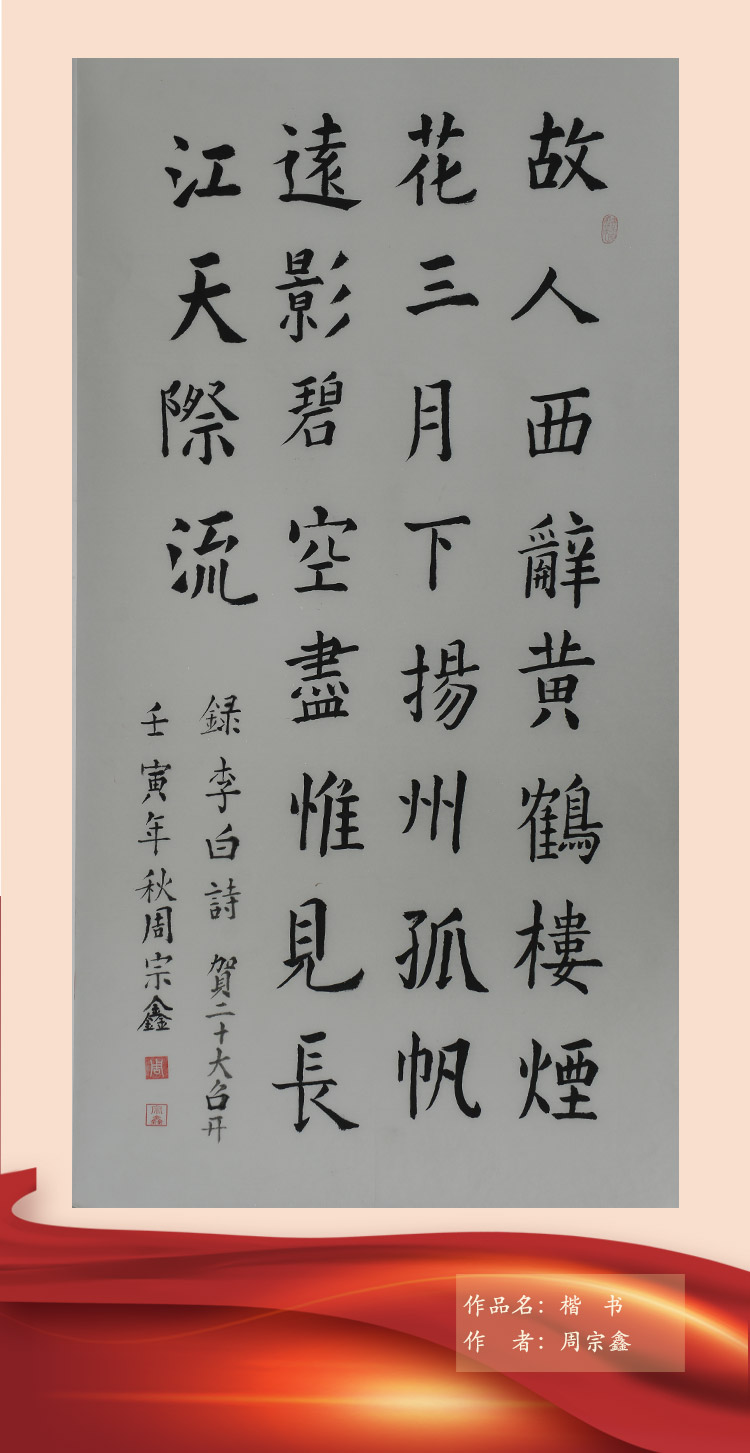 故人西辭黄鶴樓煙
花三月下揚州孤帆
遠影碧空盡惟見長
江天際流
録李白詩 賀二十大召开
壬寅年秋周宗鑫
周
宗鑫
作品名：楷 书
作 者：周宗鑫